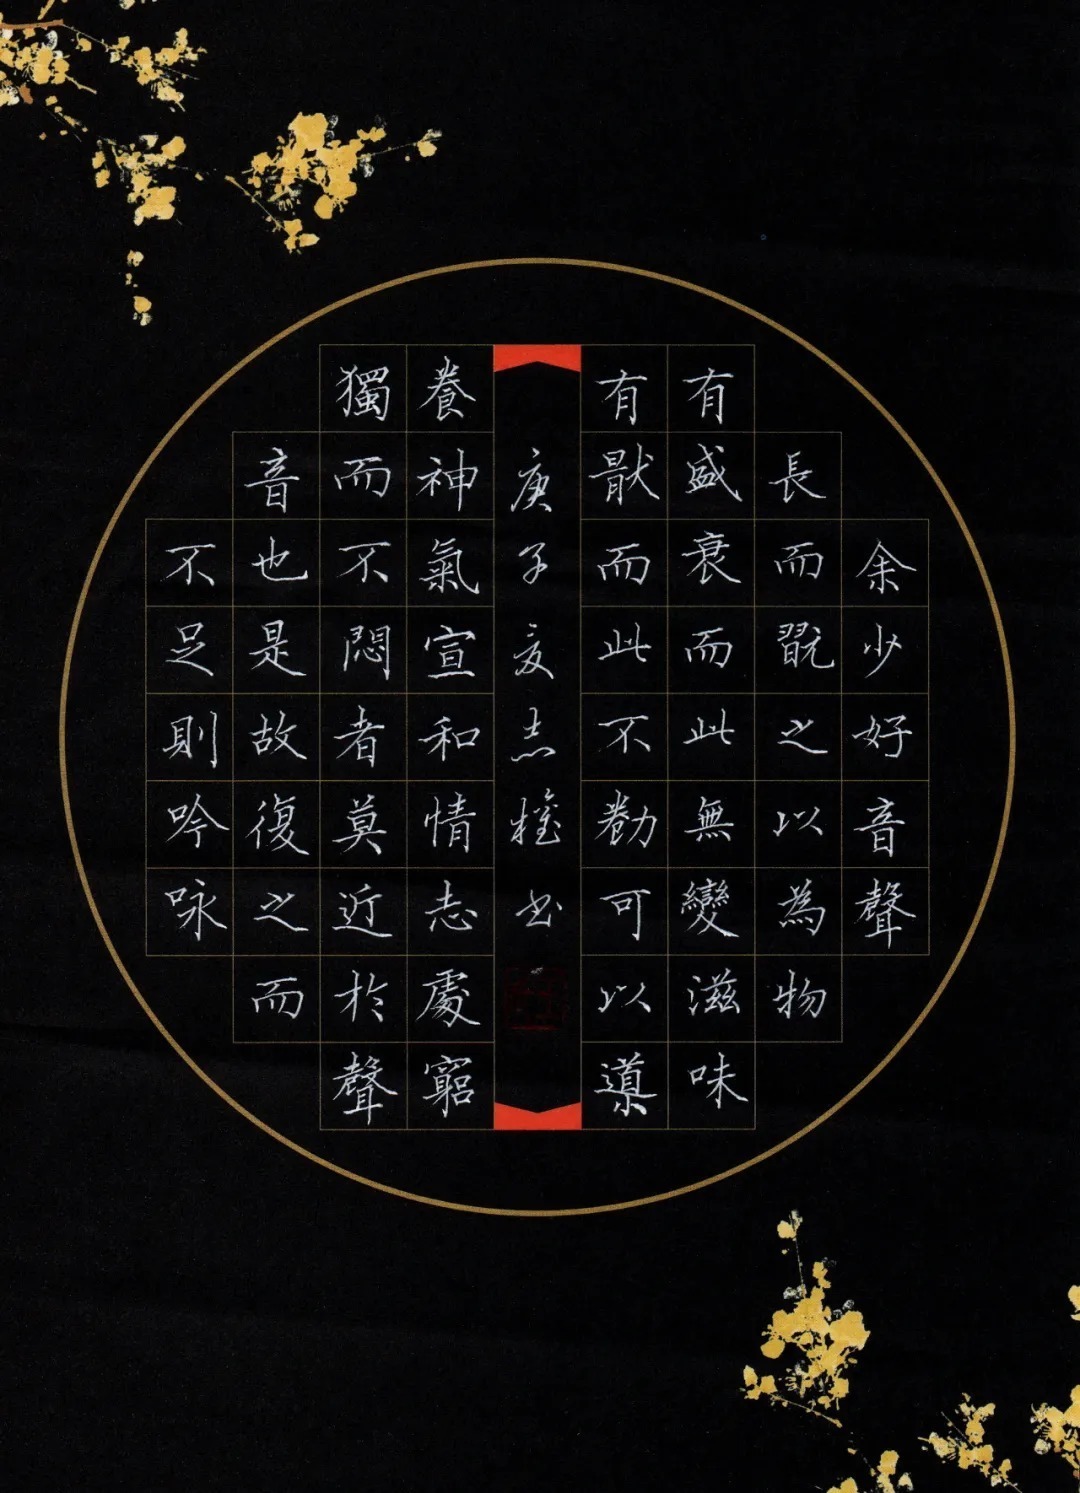 余少好音聲
長而翫之以為物
有盛衰而此無變滋味
有猒而此不勌可以導
庚子夏志书
養神氣宣和情志處窮
獨而不悶者莫近於聲
音也是故復之而
不足則吟咏